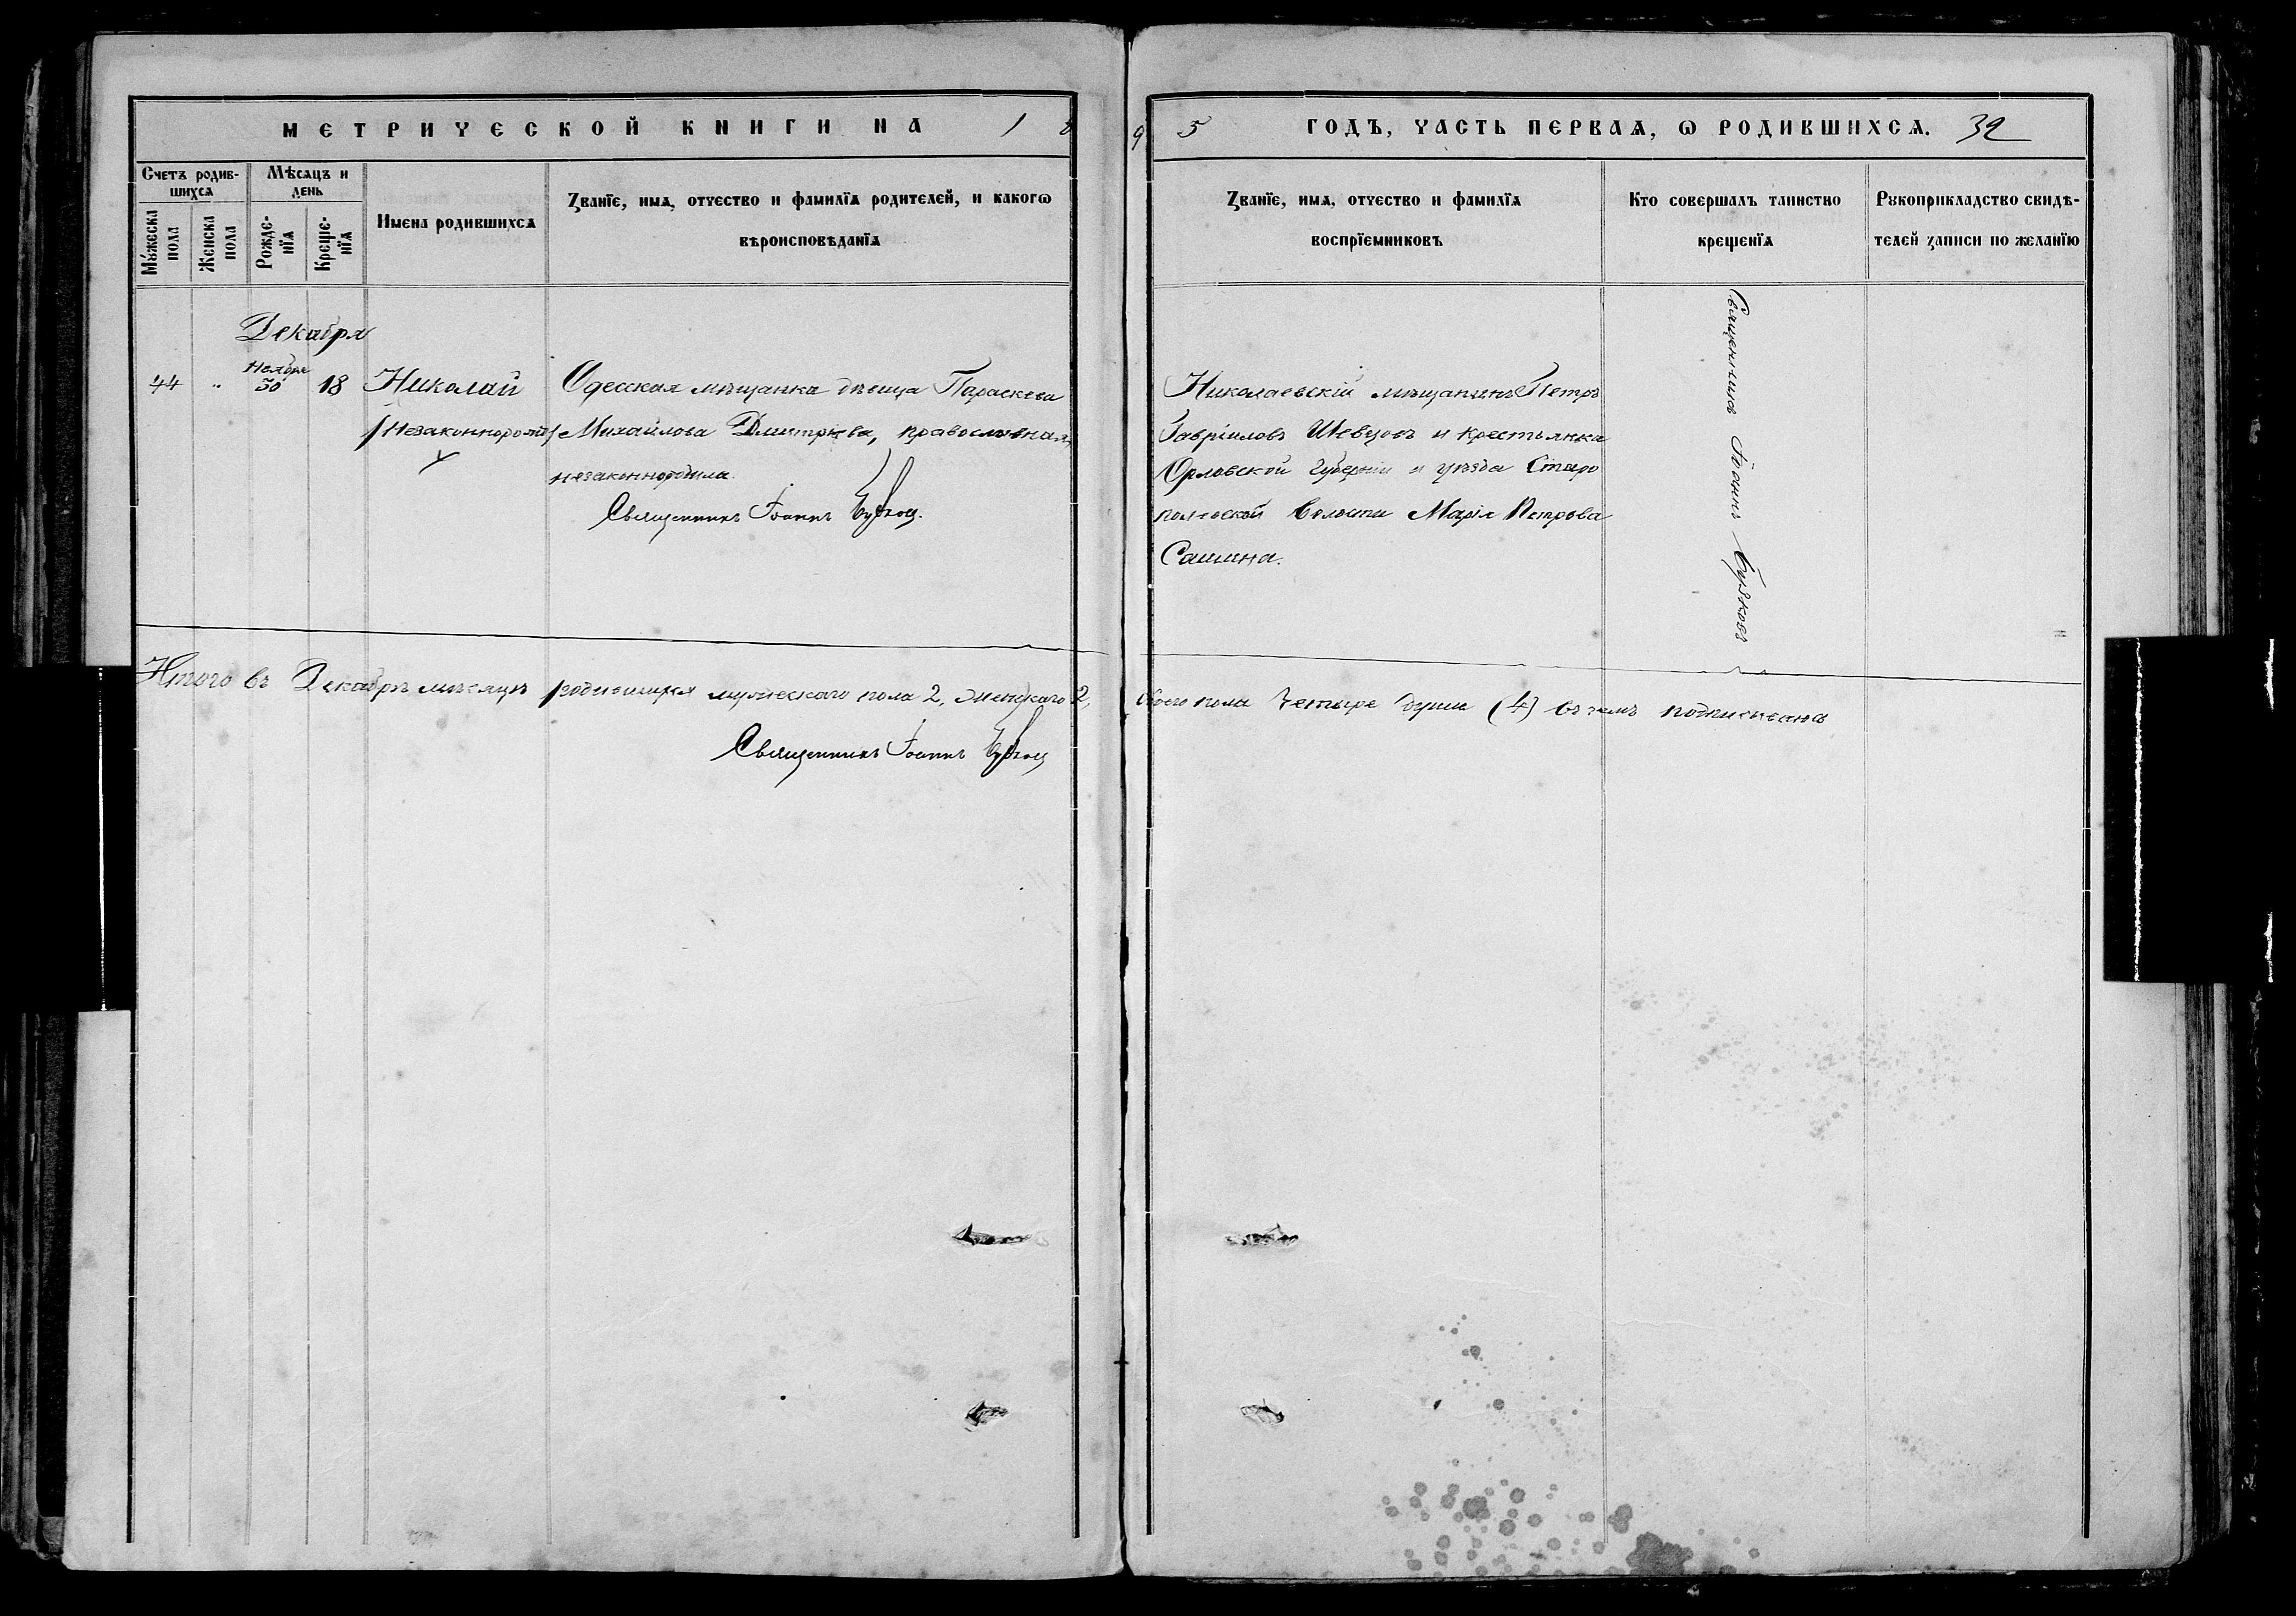 МЕТРИЧЕСКОЙ КНИГИ НА 18
95 ГОДЪ, ЧАСТЬ ПЕРВАѦ, Ѡ РОДИВШИХСѦ. 32
Счетъ родив-
шихсѧ
Мѣсѧцъ и
день
Мужеска
пола
Женска
пола
Рожде-
нїѧ
Креще-
нїѧ
Имена родившихсѧ
Званїе, имѧ, отчество и фамилїѧ родителей, и какогѡ
вѣроисповѣданїѧ
Званїе, имѧ, отчество и фамилїѧ
воспрїемниковъ
Кто совершалъ таинство
крещенїѧ
Рукоприкладство свидѣ-
телей записи по желанїю
Декабря
44 " Ноября 30 18 Николай
/Незаконнорожд/
Одесская мѣщанка дѣвица Параскева
Михайлова Дмитріева, православная,
незаконнородила.
Священникъ Іоаннъ
Николаевскій мѣщанинъ Петръ
Гавріиловъ Шевцовъ и крестьянка
Орловской губерніи и уѣзда Старо
волости Марія Петрова
Сашина.
Священникъ Іоаннъ
Итого въ Декабрѣ мѣсяцѣ родившихся мужескаго пола 2, женскаго 2,
обоего пола четыре души (4) въ чемъ
Священникъ Іоаннъ